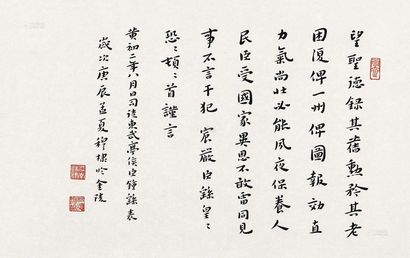 望聖德録其舊勳矜其老
困復俾一州俾圖報効直
力氣尚壯必能夙夜保養人
民臣受國家異恩不敢雷同見
事不言干犯宸嚴臣繇皇〻
恐〻頓〻首謹言
黄初二年八月日司徒東武亭侯臣鍾繇表
歲次庚辰孟夏穆棣於金陵